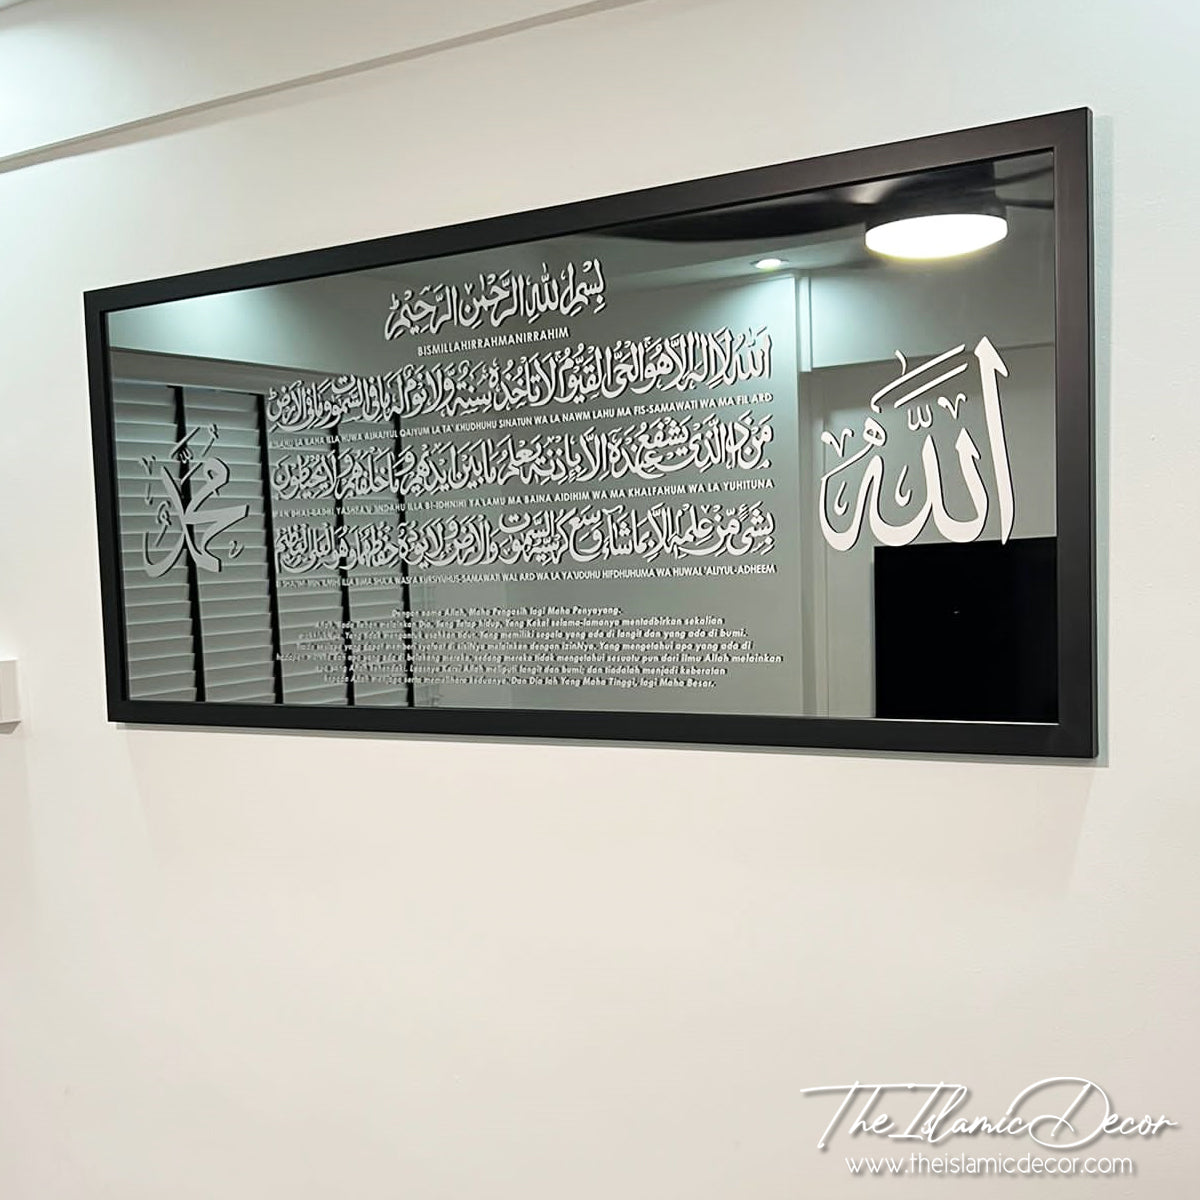 بِسْمِ اللهِ الرَّحْمٰنِ الرَّحِيْمِ
BISMILLAHIRRAHMANIRRAHIM
اَللهُ لَا اِلٰهَ اِلَّا هُوَ الْحَيُّ الْقَيُّوْمُ لَا تَأْخُذُهٗ سِنَةٌ وَّلَا نَوْمٌ لَهٗ مَا فِى السَّمٰوٰتِ وَمَا فِى الْاَرْضِ
LA ILAHA ILLA HUWA ALHAIYUL QAIYUM LA TA' KHUDHUHU SINATUN WA LA NAWM LAHU MA FIS-SAMAWATI WA MA 'FIL ARD
مَنْ ذَا الَّذِىْ يَشْفَعُ عِنْدَهٗ اِلَّا بِاِذْنِهٖ يَعْلَمُ مَا بَيْنَ اَيْدِيْهِمْ وَمَا خَلْفَهُمْ وَلَا يُحِيْطُوْنَ
YASHFA'U 'INDAHU ILLA BI-IDHNIHI YA'LAMU MA BAINA AIDIHIM WA MA KHALFAHUM WA LA YUHITUNA
بِشَىْءٍ مِّنْ عِلْمِهٖ اِلَّا بِمَا شَآءَ وَسِعَ كُرْسِيُّهُ السَّمٰوٰتِ وَالْاَرْضَ وَلَا يَئُوْدُهٗ حِفْظُهُمَا وَهُوَ الْعَلِىُّ الْعَظِيْمُ
ILLA BIMA SHA'A WASI'A KURSIYUHUS-SAMAWATI WAL ARD WA LA YA'UDUHU HIFDHUHUMA WA HUWAL 'ALIYUL-ADHEEM
Dengan nama Allah, Maha Pengasih lagi Maha Penyayang.
Allah, tiada Tuhan melainkan Dia, Yang Tetap hidup, Yang Kekal selama-lamanya mentadbirkan sekalian
Yang tidak mengantuk usahkan tidur. Yang memiliki segala yang ada di langit dan yang ada di bumi.
yang dapat memberi syafaat di sisiNya melainkan dengan izinNya. Yang mengetahui apa yang ada di
hadapan mereka dan apa yang ada di belakang mereka, sedang mereka tidak mengetahui sesuatu pun dari ilmu Allah melainkan
Luasnya Kursi Allah meliputi langit dan bumi; dan tiadalah menjadi keberatan
kepada Allah menjaga serta memelihara keduanya. Dan Dia lah Yang Maha Tinggi, lagi Maha Besar.
الله
محمد
The Islamic Decor
www.theislamicdecor.com